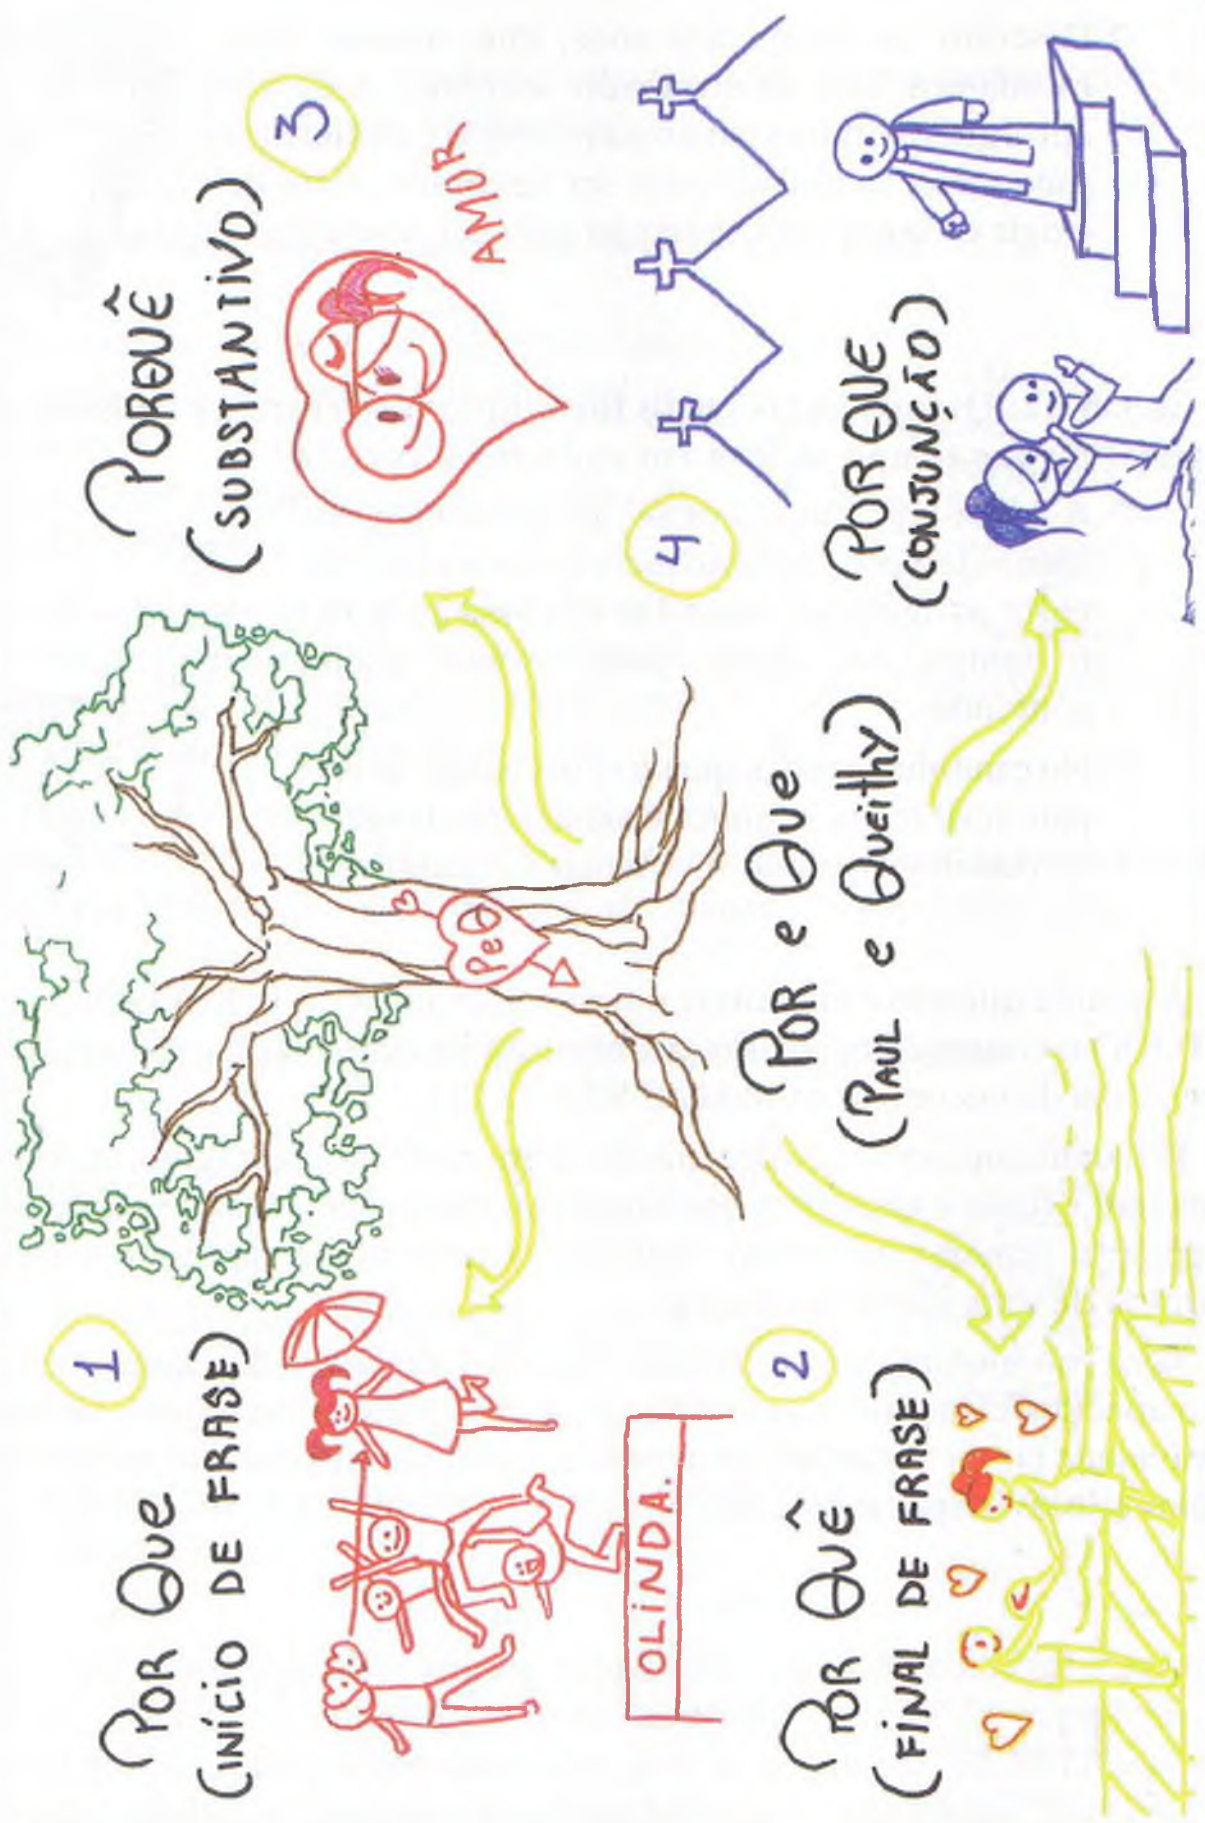 1
POR QUE
(INÍCIO DE FRASE)
OLINDA.
2
POR QUÊ
(FINAL DE FRASE)
P e Q
POR e QUE
(PAUL e QUEITHY)
3
PORQUÊ
(SUBSTANTIVO)
AMOR
4
PORQUE
(CONJUNÇÃO)